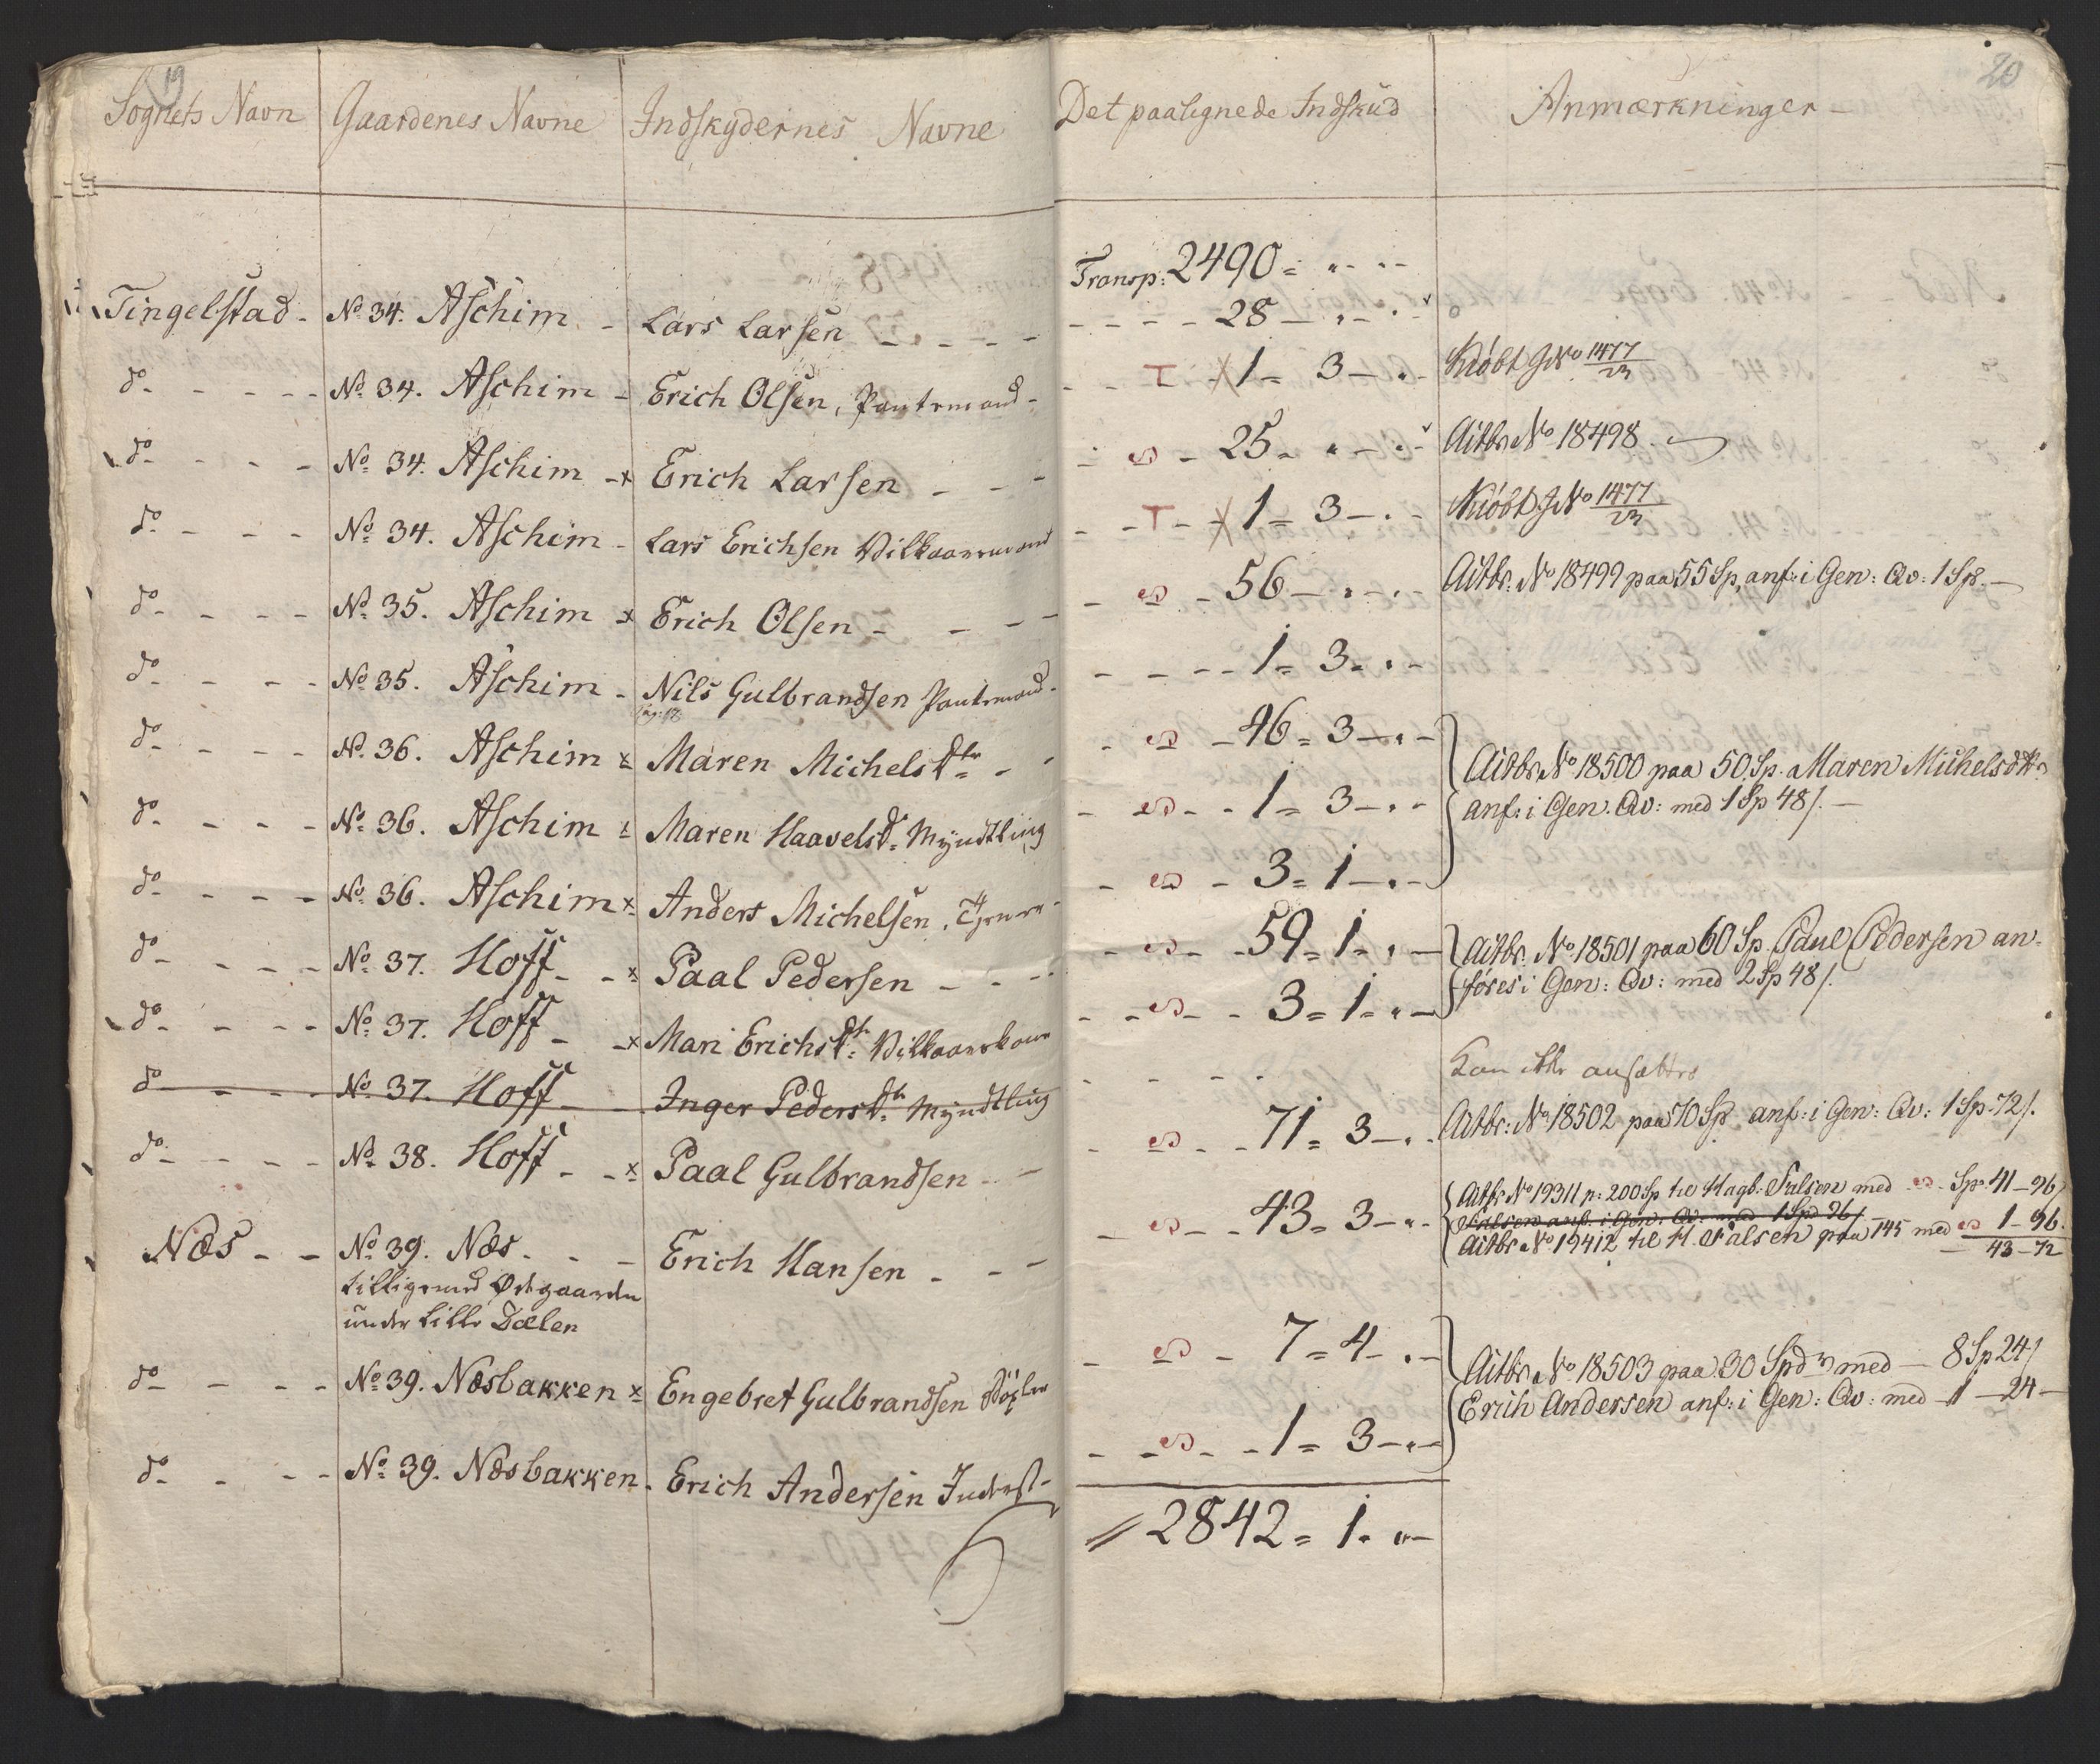 19
20
Sognets Navn Gaardenes Navne Indskydernes Navne Det paalignede Indskud Anmærkninger
Transp: 2490 = " - " -
Tingelstad - No 34. Aschim - Lars Larsen - - - - 28 - " - " -
do - - - No 34. Aschim - Erich Olsen, Pantemand - T 1 = 3 - " - Kiøbt No 1477/23
do - - - No 34. Aschim - x Erich Larsen - - - 25 - " - " - Aitbr No 18498.
do - - - No 34. Aschim - Lars Erichsen Vilkaarsmand - T 1 = 3 - " - Kiøbt No 1477/23
do - - - No 35. Aschim x Erich Olsen - - - 56 - " - " - Aitbr. No 18499 paa 55 Sp, anf: i Gen: Qv: 1 Sp.
do - - - No 35. Aschim - Nils Gulbrandsen Pantemand - 1 = 3 - " -
do - - - No 36. Aschim x Maren Michelsdtr - - 46 = 3 - " - Aitbr No 18500 paa 50 Sp. Maren Michelsdtr
do - - - No 36. Aschim x Maren Haavelsdr Myndtling - 1 = 3 - " - anf: i Gen. Qv: med 1 Sp 48/.
do - - - No 36. Aschim x Anders Michelsen, - 3 = 1 - " -
do - - - No 37. Hoff - - x Paal Pedersen - - - 59 = 1 - " - Aitbr. No 18501 paa 60 Sp. Paul Pedersen an-
do - - - No 37. Hoff - - x Mari Erichsdtr Vilkaarskone - 3 = 1 - " - føres i Gen: Qv: med 2 Sp 48/.
do - - - No 37. Hoff - - Inger Pedersdtr Myndtling - - - - Kan ikke ansættes
do - - - No 38. Hoff - - x Paal Gulbrandsen - - 71 = 3 - " - Aitbr: No 18502 paa 70 Sp anf: i Gen: Qv: 1 Sp. 72/.
Næs - - No 39. Næs - - Erich Hansen - - - 43 = 3 - " - Aitbr No 19311 p: 200 Sp til Hagb: Falsen med - Sp. 41 - 96/
Falsen anf: i Gen: Qv: med 1 Spd 96/.
Aitbr No 19412 til H. Falsen paa 145 med 1 - 96.
43 - 72
tilligemed Ødegaarden
under Lille Dælen
do - - - No 39. Næsbakken x Engebret Gulbrandsen - 7 = 4 - " - Aitbr No 18503 paa 30 Spdr med - 8 Sp 24/
Erich Andersen anf: i Gen: Qv: med 1 - 24 -
do - - - No 39. Næsbakken - Erich Andersen Inderst - 1 = 3 - " -
2842 = 1 - " -